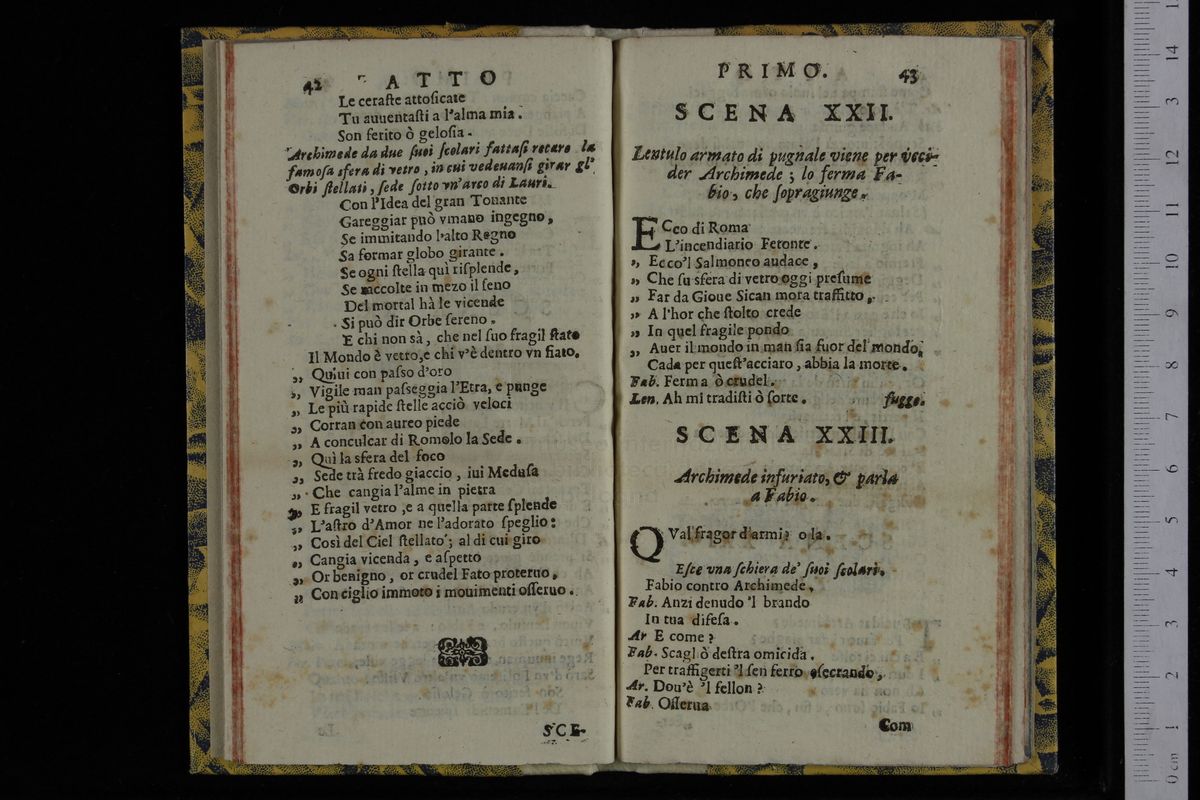 42 ATTO
Le ceraſte attoſicate
Tu auuentaſti a l'alma mia.
Son ferito ò geloſia.
Archimede da due ſuoi ſcolari fattaſi recare la
famoſa sfera di vetro, in cui vedeuanſi girar gl'
Orbi ſtellati, ſede ſotto vn'arco di Lauri.
Con l'Idea del gran Tonante
Gareggiar può vmano ingegno,
Se immitando l'alto Regno
Sa formar globo girante.
Se ogni ſtella quì riſplende,
Se raccolte in mezo il ſeno
Del mortal hà le vicende
Si può dir Orbe ſereno.
E chi non sà, che nel ſuo fragil ſtato
Il Mondo è vetro,e chi v'è dentro vn fiato.
„ Quiui con paſso d'oro
„ Vigile man paſseggia l'Etra, e punge
„ Le più rapide ſtelle acciò veloci
„ Corran con aureo piede
„ A conculcar di Romolo la Sede.
„ Quì la sfera del foco
„ Sede trà fredo giaccio, iui Meduſa
„ Che cangia l'alme in pietra
„ E fragil vetro,e a quella parte ſplende
„ L'aſtro d'Amor ne l'adorato ſpeglio:
„ Così del Ciel ſtellato; al di cui giro
„ Cangia vicenda, e aſpetto
„ Or benigno, or crudel Fato proteruo,
„ Con ciglio immoto i mouimenti oſſeruo.
SCE-
PRIMO. 43
SCENA XXII.
Lentulo armato di pugnale viene per vcci-
der Archimede; lo ferma Fa-
bio, che ſopragiunge.
ECco di Roma
L'incendiario Fetonte.
„ Ecco'l Salmoneo audace,
„ Che ſu sfera di vetro oggi preſume
„ Far da Gioue Sican mora traffitto,
„ A l'hor che ſtolto crede
„ In quel fragile pondo
„ Auer il mondo in man ſia fuor del mondo,
Cada per queſt'acciaro, abbia la morte.
Fab. Ferma ò crudel.
Len. Ah mi tradiſti ò ſorte. fugge.
SCENA XXIII.
Archimede infuriato, & parla
a Fabio.
QVal fragor d'armi? o la.
Eſce vna ſchiera de' ſuoi ſcolari.
Fabio contro Archimede,
Fab. Anzi denudo 'l brando
In tua difeſa.
Ar E come?
Fab. Scagl ò deſtra omicida.
Per traffigerti 'l ſen ferro eſecrando,
Ar. Dou'è 'l fellon?
Fab. Oſſerua
Com